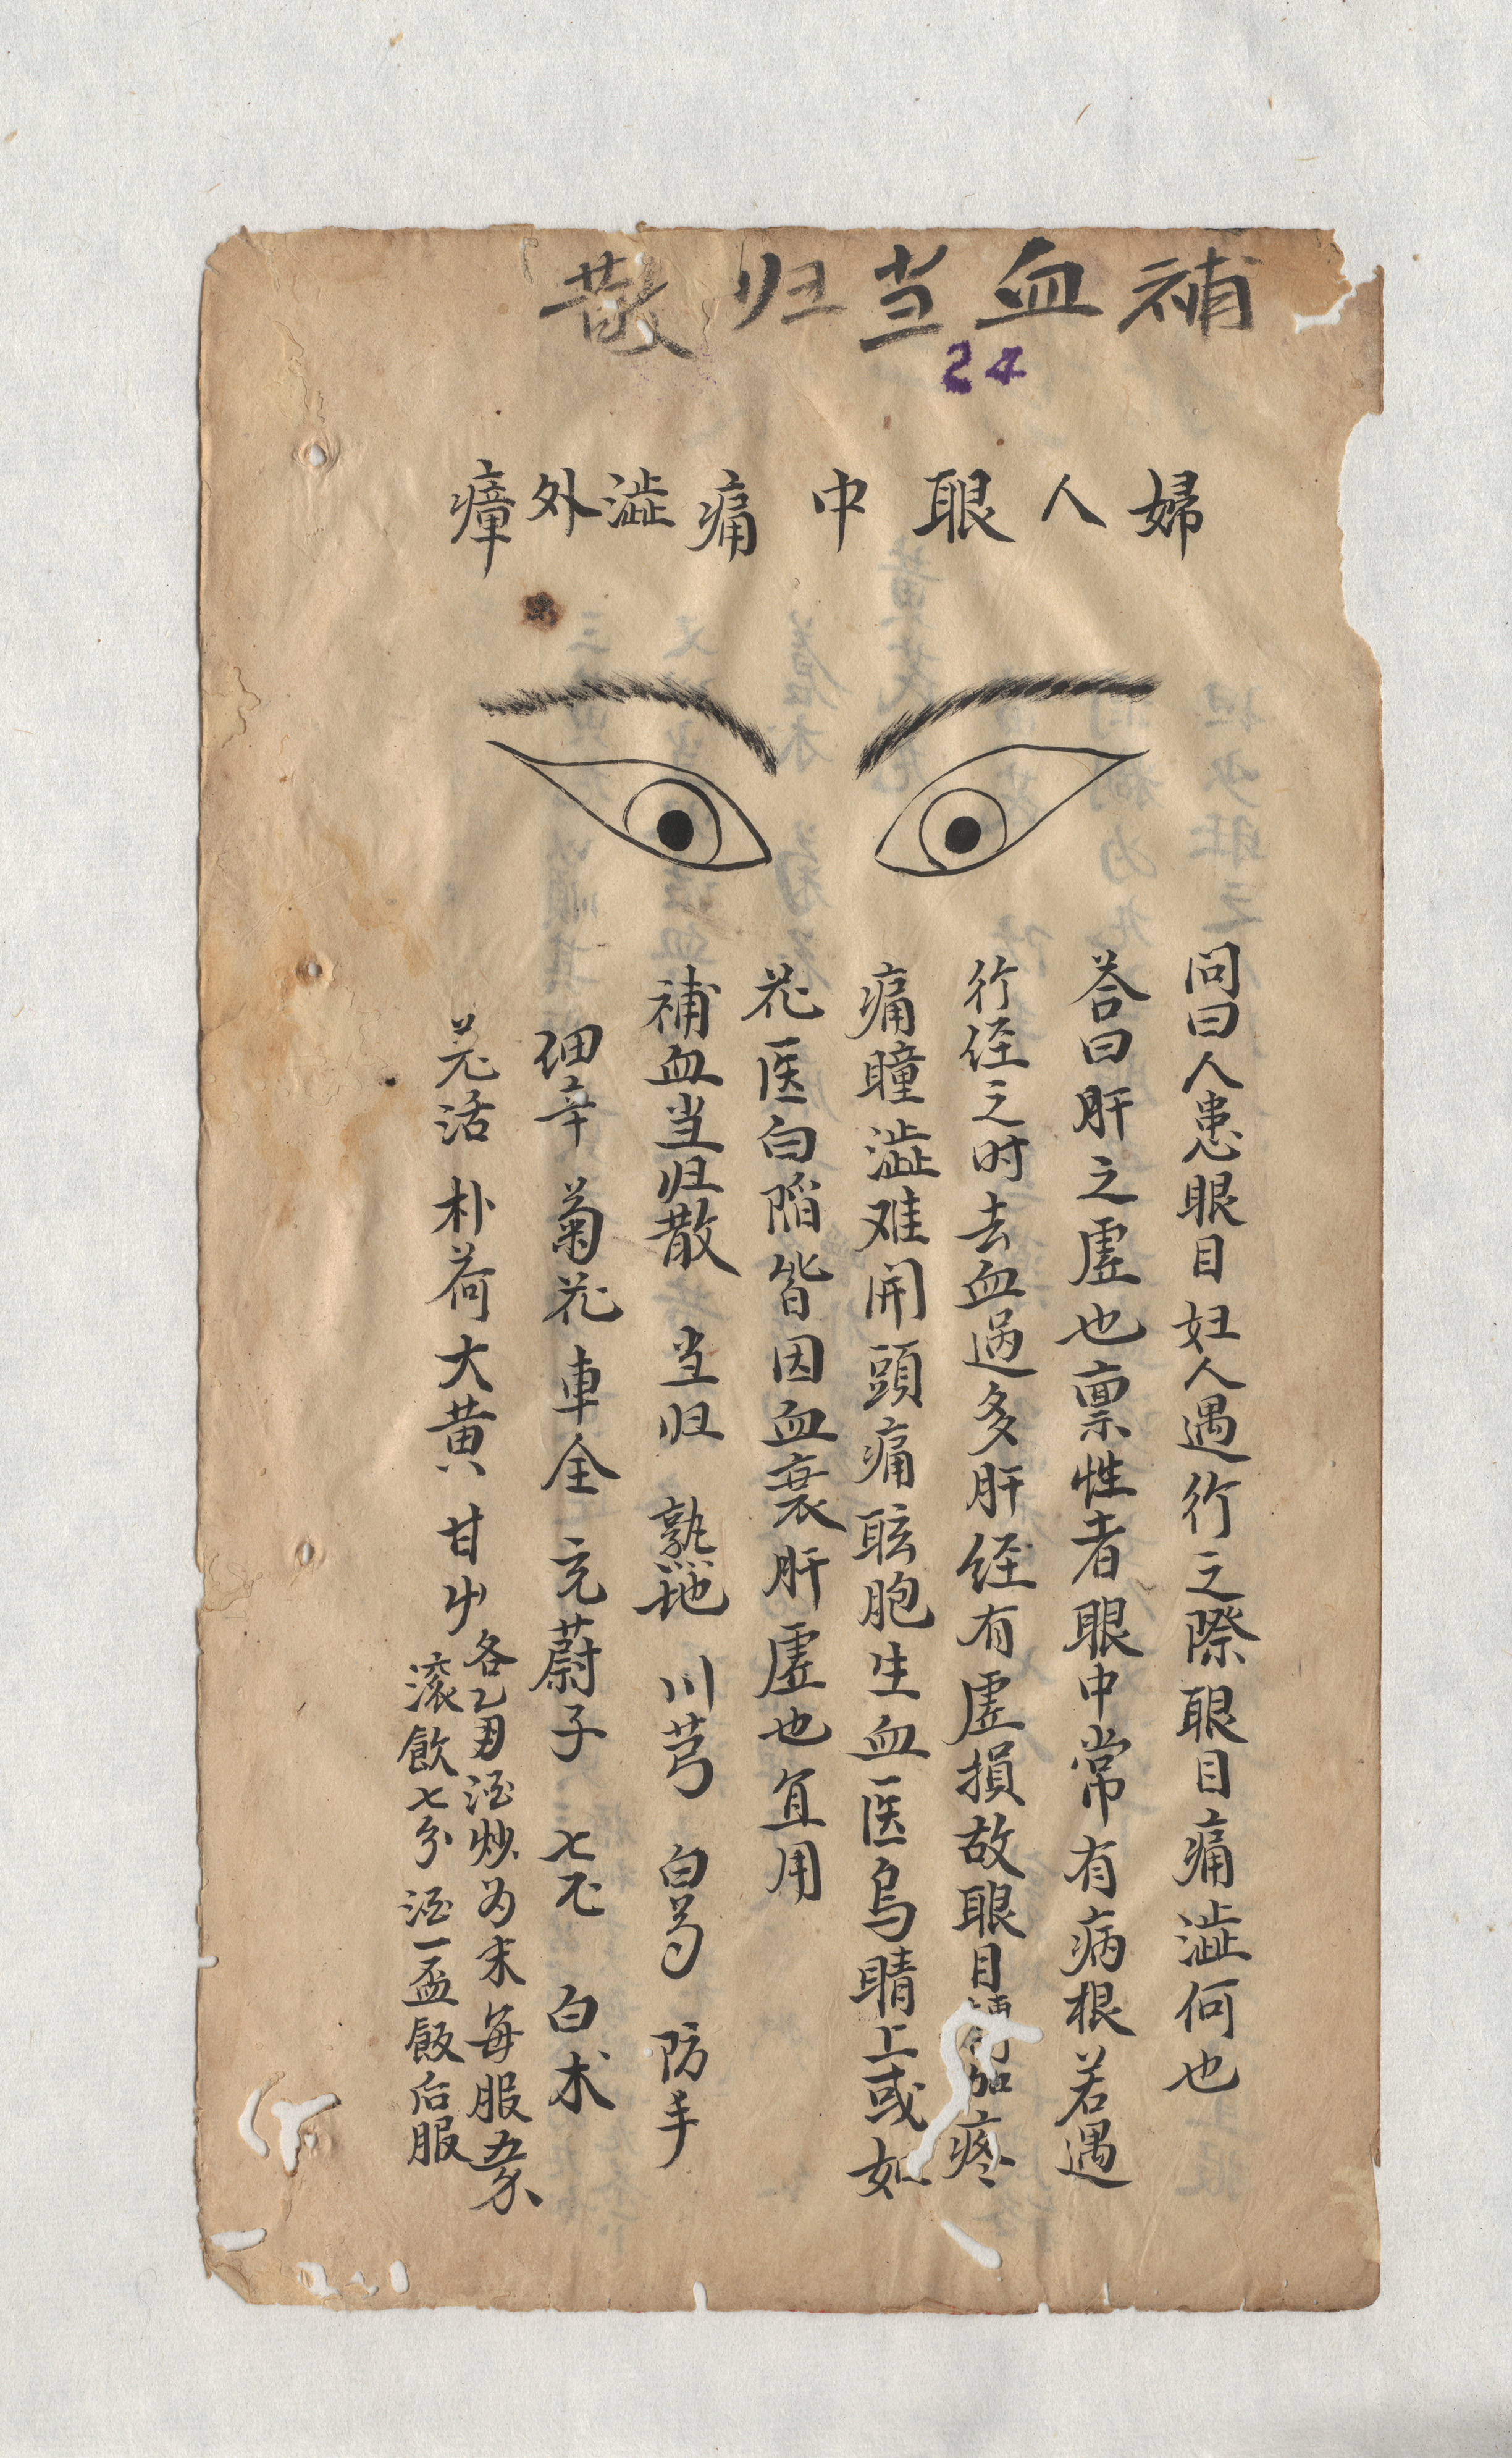 補血当归散
24
婦人眼中痛澁外瘴
問曰人患眼目妇人遇行之際眼目痛澁何也
荅曰肝之虛也禀性者眼中常有病根若遇
行经之时去血过多肝经有虛損故眼目加疼
痛瞳澁难開頭痛眩胞生血医烏睛上或如
花医白陷皆因血衰肝虛也宜用
補血当归散 当归 熟地 川芎 白芍 防手
细辛 菊花 車全 充蔚子 白术
羌活 朴荷 大黄 甘
各乙 酒炒为末每服
滚飲七分 酒一盃飯后服